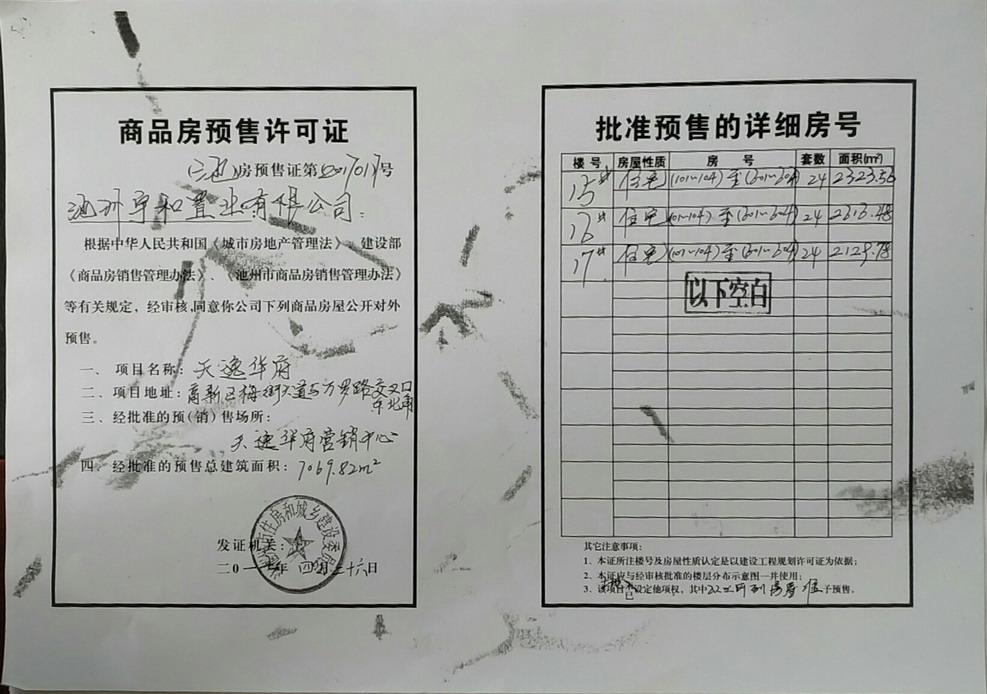 商品房预售许可证
(池)房预售证第 号
池州卓和置业有限公司：
根据中华人民共和国《城市房地产管理法》、建设部
《商品房销售管理办法》、《池州市商品房销售管理办法》
等有关规定，经审核，同意你公司下列商品房屋公开对外
预售。
一、项目名称：天逸华府
二、项目地址：高新区梅街大道与万罗路交叉口
东北角
三、经批准的预(销)售场所：
天逸华府营销中心
四、经批准的预售总建筑面积：7069.82m²
市住房和城乡建设委员会
发证机关：
二0一七年 四月二十六日
批准预售的详细房号
楼号 房屋性质 房号 套数 面积(m²)
15# 住宅 (101～104)至(601～604) 24 2323.56
16# 住宅 (101～104)至 24
17# 住宅 (101～104)至 24
以下空白
其它注意事项：
1、本证所注楼号及房屋性质认定是以建设工程规划许可证为依据；
2、本证应与经审核批准的楼层分布示意图一并使用；
3、该项目 设定他项权，其中以上所列房屋准予预售。